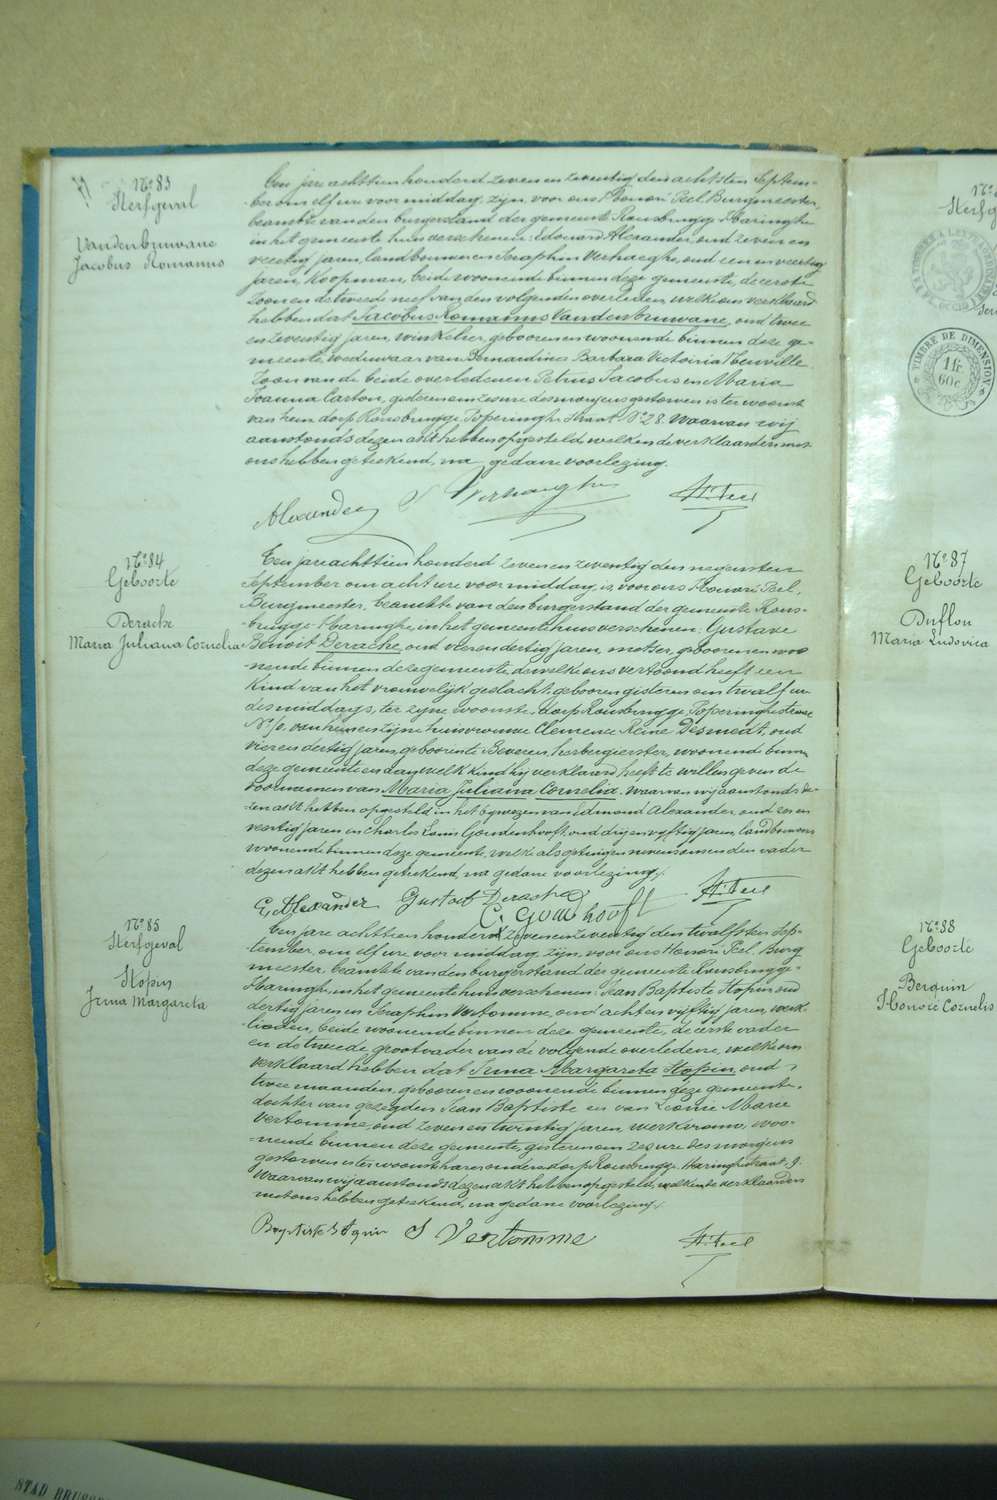 N° 83
Sterfgeval
Vandenbruwane
Jacobus Romanus
Een jare achttien honderd zeven en zeventig den achtsten Septem-
ber om elf ure voor middag, zijn voor ons Honoré Peel Burgmeester,
beambte van den burgerstand der gemeente Rousbrugge Haringhe
in het gemeente huis verschenen: Edouard Alexander, oud zeven en
veertig jaren, landbouwer en Seraphin Verhaeghe, oud een en veertig
jaren, Koopman, beide woonende binnen deze gemeente, de eerste
zoon en de tweede neef van den volgenden overleden, welke ons verklaard
hebben dat Jacobus Romanus Vandenbruwane, oud twee
en zeventig jaren, winkelier, geboren en woonende binnen deze ge-
meente, weduwaar van Bernardine Barbara Victoiria Theuville
zoon van de beide overledenen Petrus Jacobus en Maria
Joanna Carton, gisteren om zes ure des morgens gestorven is ter woonst
van hem dorp Rousbrugge Poperinghe straat N° 28. Waarvan wij
aanstonds dezen akt hebben opgesteld, welken de verklaarders met
ons hebben geteekend, na gedane voorlezing.
Alexander S Verhaeghe H. Peel
N° 84
Geboorte
Derache
Maria Juliana Cornelia
Een jare achttien honderd zeven en zeventig den negensten
September om acht ure voor middag, is voor ons Honoré Peel,
Burgmeester, beambte van den burgerstand der gemeente Rous-
brugge-Haringhe, in het gemeente huis verschenen: Gustave
Benoit Derache, oud vier en dertig jaren, metser, geboren en woo-
nende binnen deze gemeente, dewelke ons vertoond heeft een
kind van het vrouwelijk geslacht, geboren gisteren om twalf ure
des middags, ter zijne woonste, dorp Rousbrugge, Poperinghestraat
van hem en zijne huisvrouwe Clemence Reine Desmedt, oud
vier en dertig jaren, geboren te Beveren, herbergierster, woonende binnen
deze gemeente en aan welk kind hij verklaard heeft te willen geven de
voornamen van Maria Juliana Cornelia. Waarvan wij aanstonds de-
zen akt hebben opgesteld in het bijwezen van Edmond Alexander, oud zes en
veertig jaren en Charles Louis Goudenhooft, oud drij en vijftig jaren, landbouwers
woonende binnen deze gemeente, welke als getuigen nevens ons en den vader
dezen akt hebben geteekend, na gedane voorlezing.
E. Alexander Gustaef Derache H. Peel
N° 85
Sterfgeval
Hopin
Irma Margareta
Een jare achttien honderd zeven en zeventig den twalfsten Sep-
tember, om elf ure voor middag, zijn voor ons Honoré Peel, Burg
meester, beambte van den burgerstand der gemeente Rousbrugge-
Haringhe, in het gemeente huis verschenen: Jean Baptiste Hopin, oud
dertig jaren en Seraphin Vertomme, oud acht en vijftig jaren, werk
lieden, beide woonende binnen deze gemeente, de eerste vader
en de tweede grootvader van de volgende overledene, welke ons
verklaard hebben dat Irma Margareta Hopin, oud
twee maanden, geboren en woonende binnen deze gemeente,
dochter van gezegden Jean Baptiste en van Leonie Marie
Vertomme, oud zeven en twintig jaren, werkvrouw, woo-
nende binnen deze gemeente, gisteren om zes ure des morgens
gestorven is ter woonst harer ouders dorp Rousbrugge, Haringhestraat, 9.
Waarvan wij aanstonds dezen akt hebben opgesteld, welken de verklaarders
met ons hebben geteekend, na gedane voorlezing.
S Vertomme H. Peel
TIMBRE DE DIMENSION
1 fr.
60 c.
N° 87
Geboorte
Duflou
Maria Ludovica
N° 88
Geboorte
Berquin
Honoré Cornelis
STAD